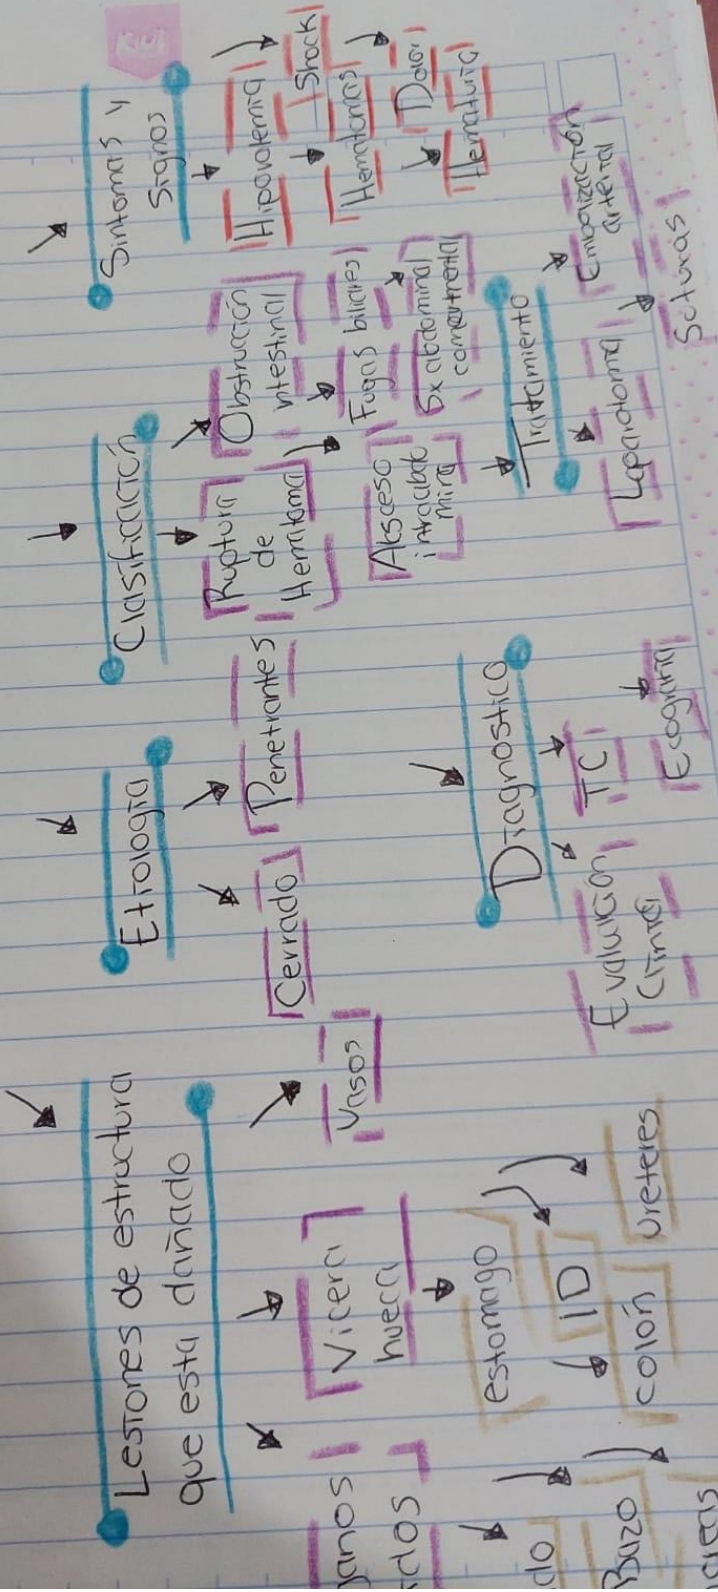 Lesiones de estructura
que esta dañado
Vicera
hueca
estomago
ID
colón
ureteres
Vasos
Bazo
Etiología
Cerrado
Penetrantes
Clasificación
Ruptura
de
Hematoma
Obstrucción
intestinal
Absceso
intraabdo
mina
Fugas biliares
Sx abdominal
Síntomas y
Signos
Hipovolemia
Shock
Hematomas
Dolor
Hematuria
Diagnostico
Evaluación
Clínica
TC
Ecografía
Tratamiento
Laparotomia
Embolización
arterial
Suturas